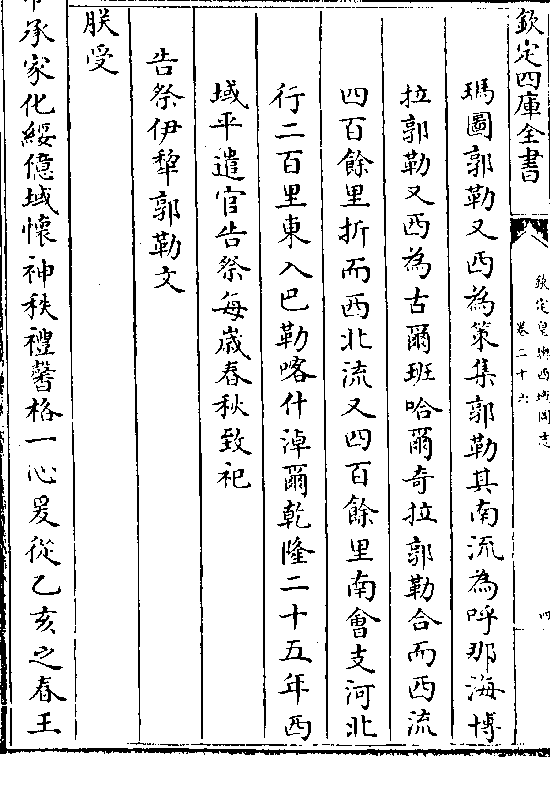 欽定四庫全書
欽定皇輿西域圖志
卷二十六
四
瑪圖郭勒又西為策集郭勒其南流為呼那海博
拉郭勒又西為古爾班哈爾奇拉郭勒合而西流
四百餘里折而西北流又四百餘里南會支河北
行二百里東入巴勒喀什淖爾乾隆二十五年西
域平遣官告祭每歲春秋致祀
告祭伊犂郭勒文
朕受
承家化綏億域懷神秩禮馨格一心爰從乙亥之春王